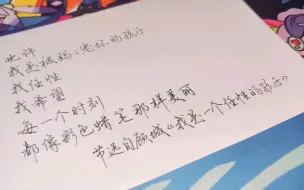 也许
我是被妈妈宠坏的孩子
我任性
我希望
每一个时刻
都像彩色蜡笔那样美丽
节选自顾城《我是一个任性的孩子》